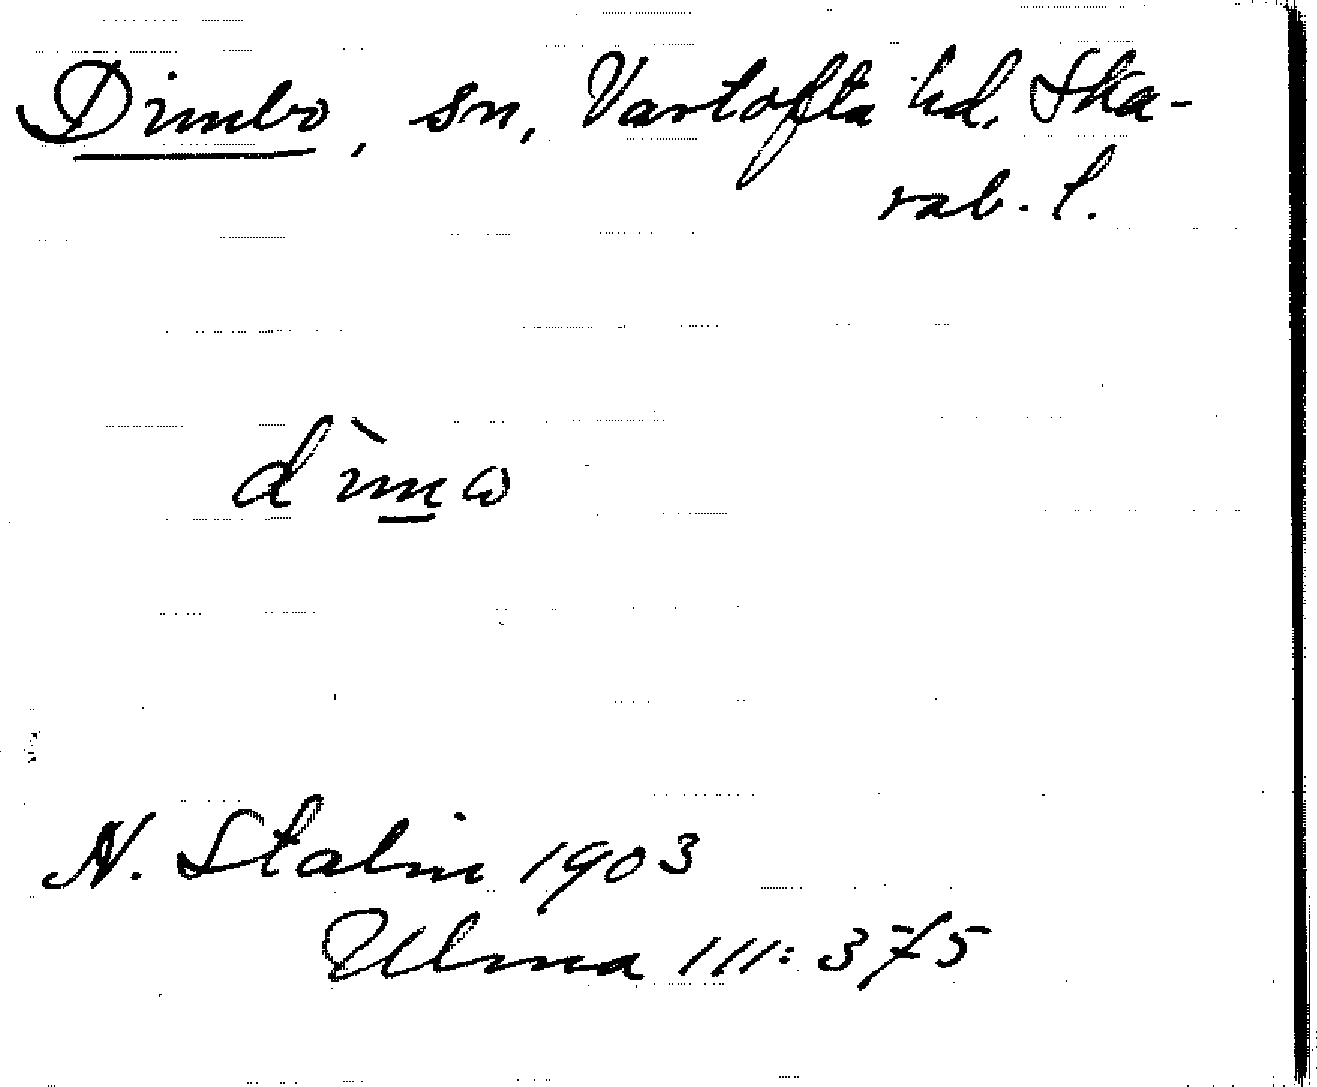 Dimbo, sn, Vartofta hd, Ska-
rab. l.
dìmω
N. Stalin 1903
Ulma 111: 375